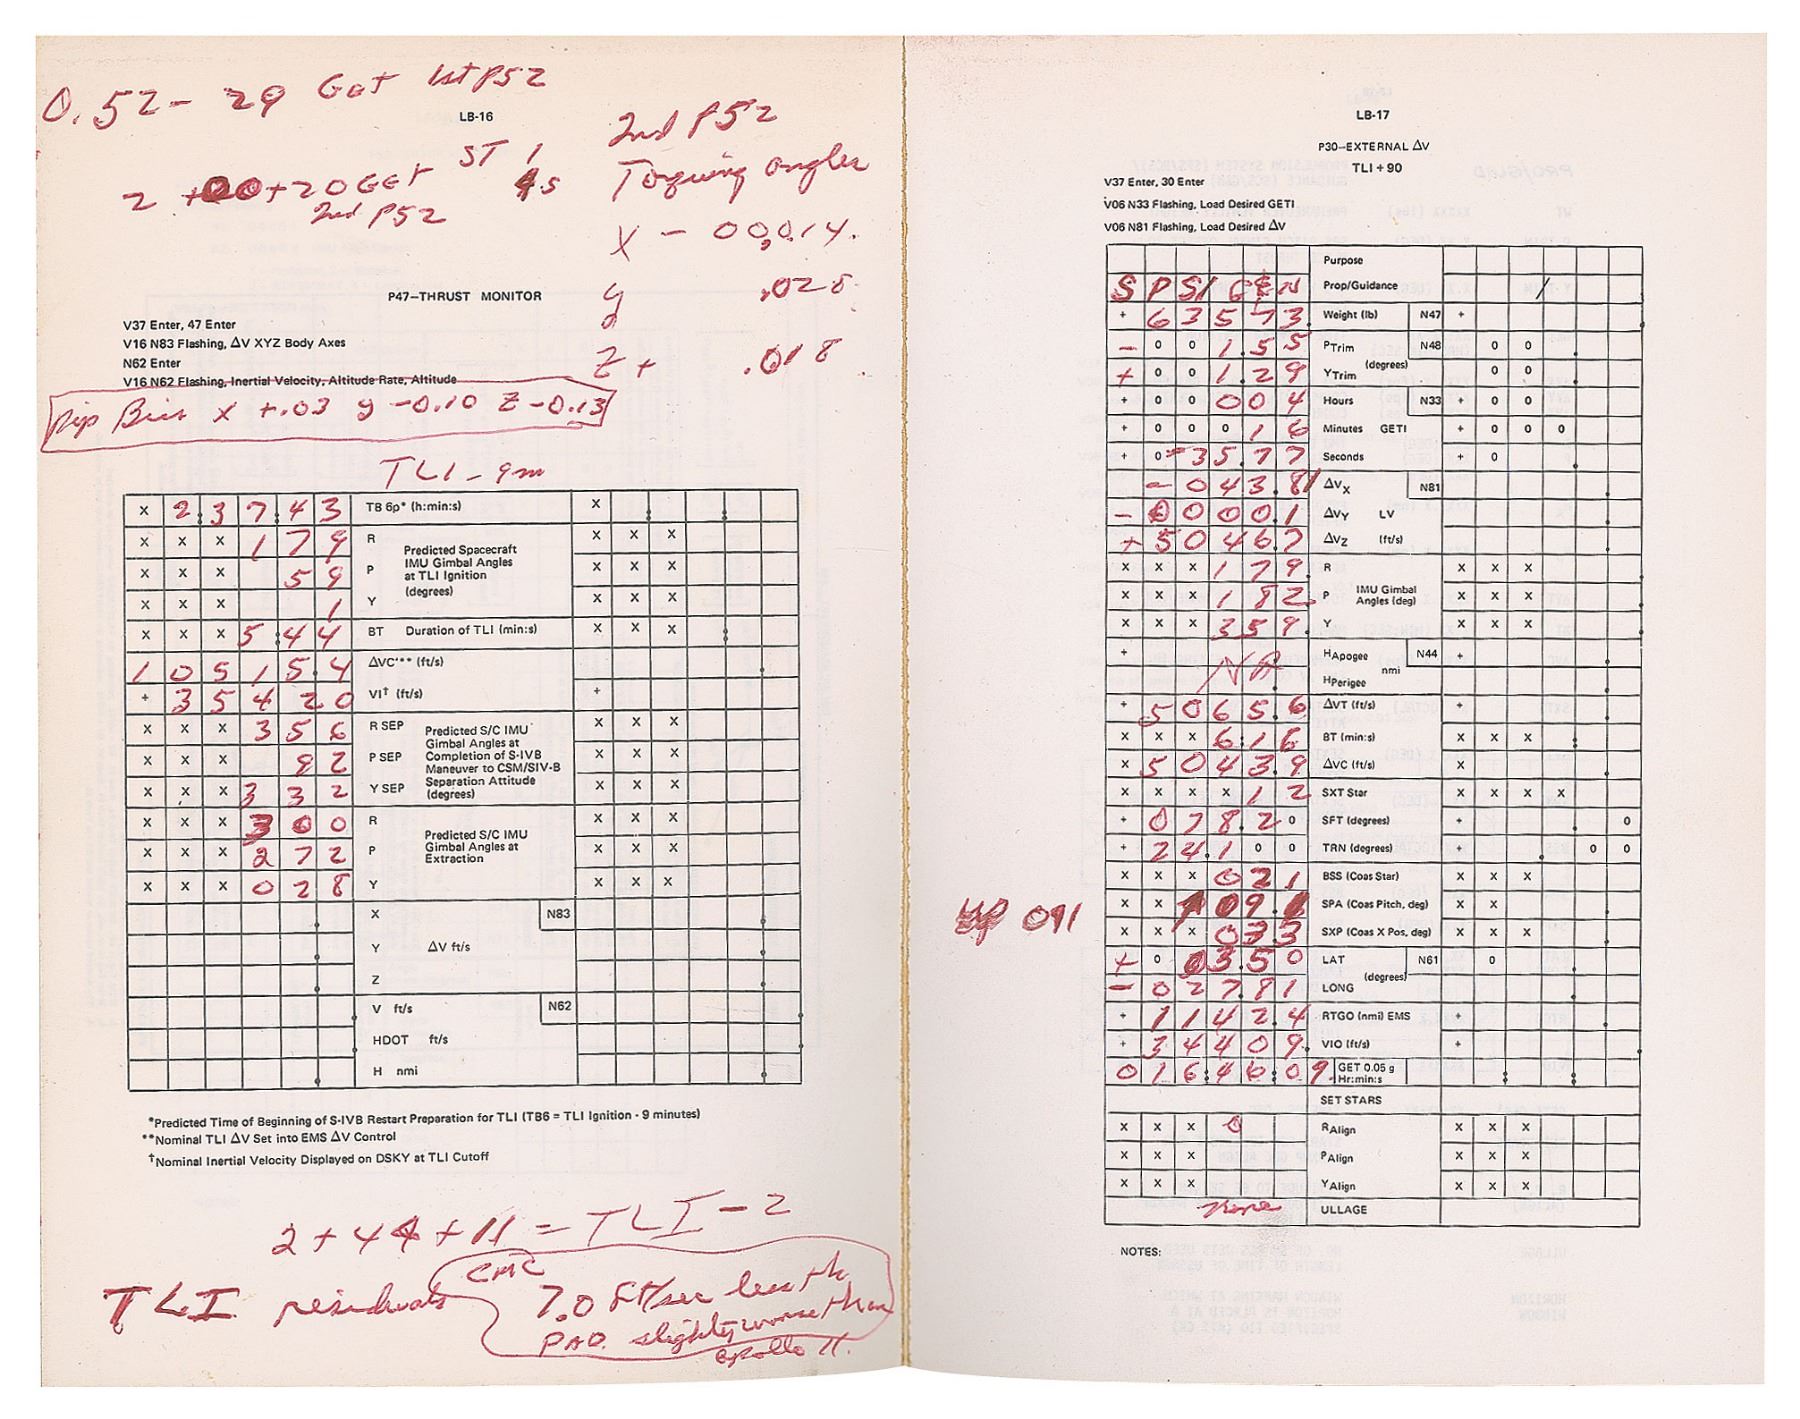 0.52 - 29 Get 1st P52
LB-16
2nd P52
ST 1
2 + 00 + 20 GET 4s Torquing angles
2nd P52
X - 00,014.
P47–THRUST MONITOR
y .028
V37 Enter, 47 Enter
V16 N83 Flashing, ΔV XYZ Body Axes
N62 Enter
Z + .018
V16 N62 Flashing, Inertial Velocity, Altitude Rate, Altitude
Pip Bias X +.03 y -0.10 Z -0.13
TLI - 9m
X 2:37:43 TB 6p* (h:min:s) X
X X X 179 R Predicted Spacecraft IMU Gimbal Angles at TLI Ignition (degrees) X X X
X X X 59 P X X X
X X X 1 Y X X X
X X X 5:44 BT Duration of TLI (min:s) X X X
10515.4 ΔVC*** (ft/s)
+ 35420 VI† (ft/s) +
X X X 356 R SEP Predicted S/C IMU Gimbal Angles at Completion of S-IVB Maneuver to CSM/SIV-B Separation Attitude (degrees) X X X
X X X 92 P SEP X X X
X X X 332 Y SEP X X X
X X X 300 R Predicted S/C IMU Gimbal Angles at Extraction X X X
X X X 272 P X X X
X X X 028 Y X X X
X N83
Y ΔV ft/s
Z
V ft/s N62
HDOT ft/s
H nmi
*Predicted Time of Beginning of S-IVB Restart Preparation for TLI (TB6 = TLI Ignition - 9 minutes)
**Nominal TLI ΔV Set into EMS ΔV Control
†Nominal Inertial Velocity Displayed on DSKY at TLI Cutoff
2 + 44 + 11 = TLI - 2
CMC
TLI residuals 7.0 ft/sec less th
PAD. slightly worse than
Apollo 11.
LB-17
P30–EXTERNAL ΔV
TLI + 90
V37 Enter, 30 Enter
V06 N33 Flashing, Load Desired GETI
V06 N81 Flashing, Load Desired ΔV
Purpose
SPS/G&N Prop/Guidance /
+ 63573 Weight (lb) N47 +
- 0 0 1.55 PTrim N48 0 0
(degrees)
+ 0 0 1.29 YTrim 0 0
+ 0 0 004 Hours N33 + 0 0
+ 0 0 0 16 Minutes GETI + 0 0 0
+ 0 35.77 Seconds + 0
- 043.81 ΔVX N81
- 0000.1 ΔVY LV
+ 5046.7 ΔVZ (ft/s)
X X X 179. R X X X
X X X 182. P IMU Gimbal Angles (deg) X X X
X X X 359. Y X X X
+ NA HApogee N44 +
nmi
HPerigee
+ 5065.6 ΔVT (ft/s) +
X X X 6:16 BT (min:s) X X X
X 5043.9 ΔVC (ft/s) X
X X X X 12 SXT Star X X X X
+ 078.2 0 SFT (degrees) + 0
+ 24.1 0 0 TRN (degrees) + 0 0
X X X 021 BSS (Coas Star) X X X
up 091
X X 09.1 SPA (Coas Pitch, deg) X X
X X X 03.3 SXP (Coas X Pos, deg) X X X
+ 0 03.50 LAT N61 0
(degrees)
- 027.81 LONG
+ 1142.4 RTGO (nmi) EMS +
+ 34409. VIO (ft/s) +
016:46:09. GET 0.05 g Hr:min:s
SET STARS
X X X 0 RAlign X X X
X X X PAlign X X X
X X X YAlign X X X
none ULLAGE
NOTES: